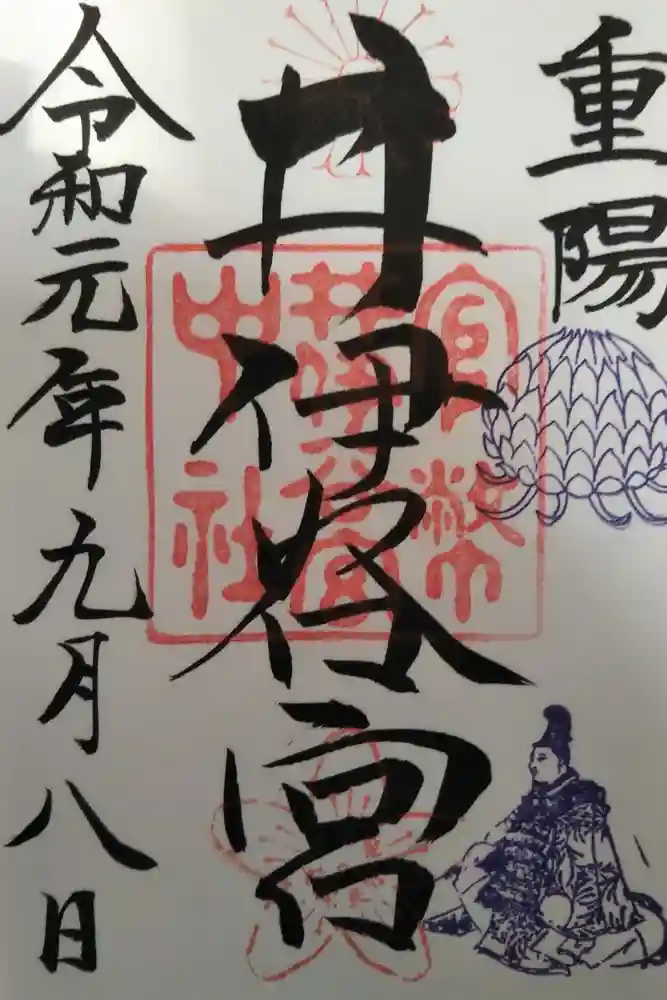 重陽
井伊谷宮
令和元年九月八日
官幣
井伊谷宮
中社